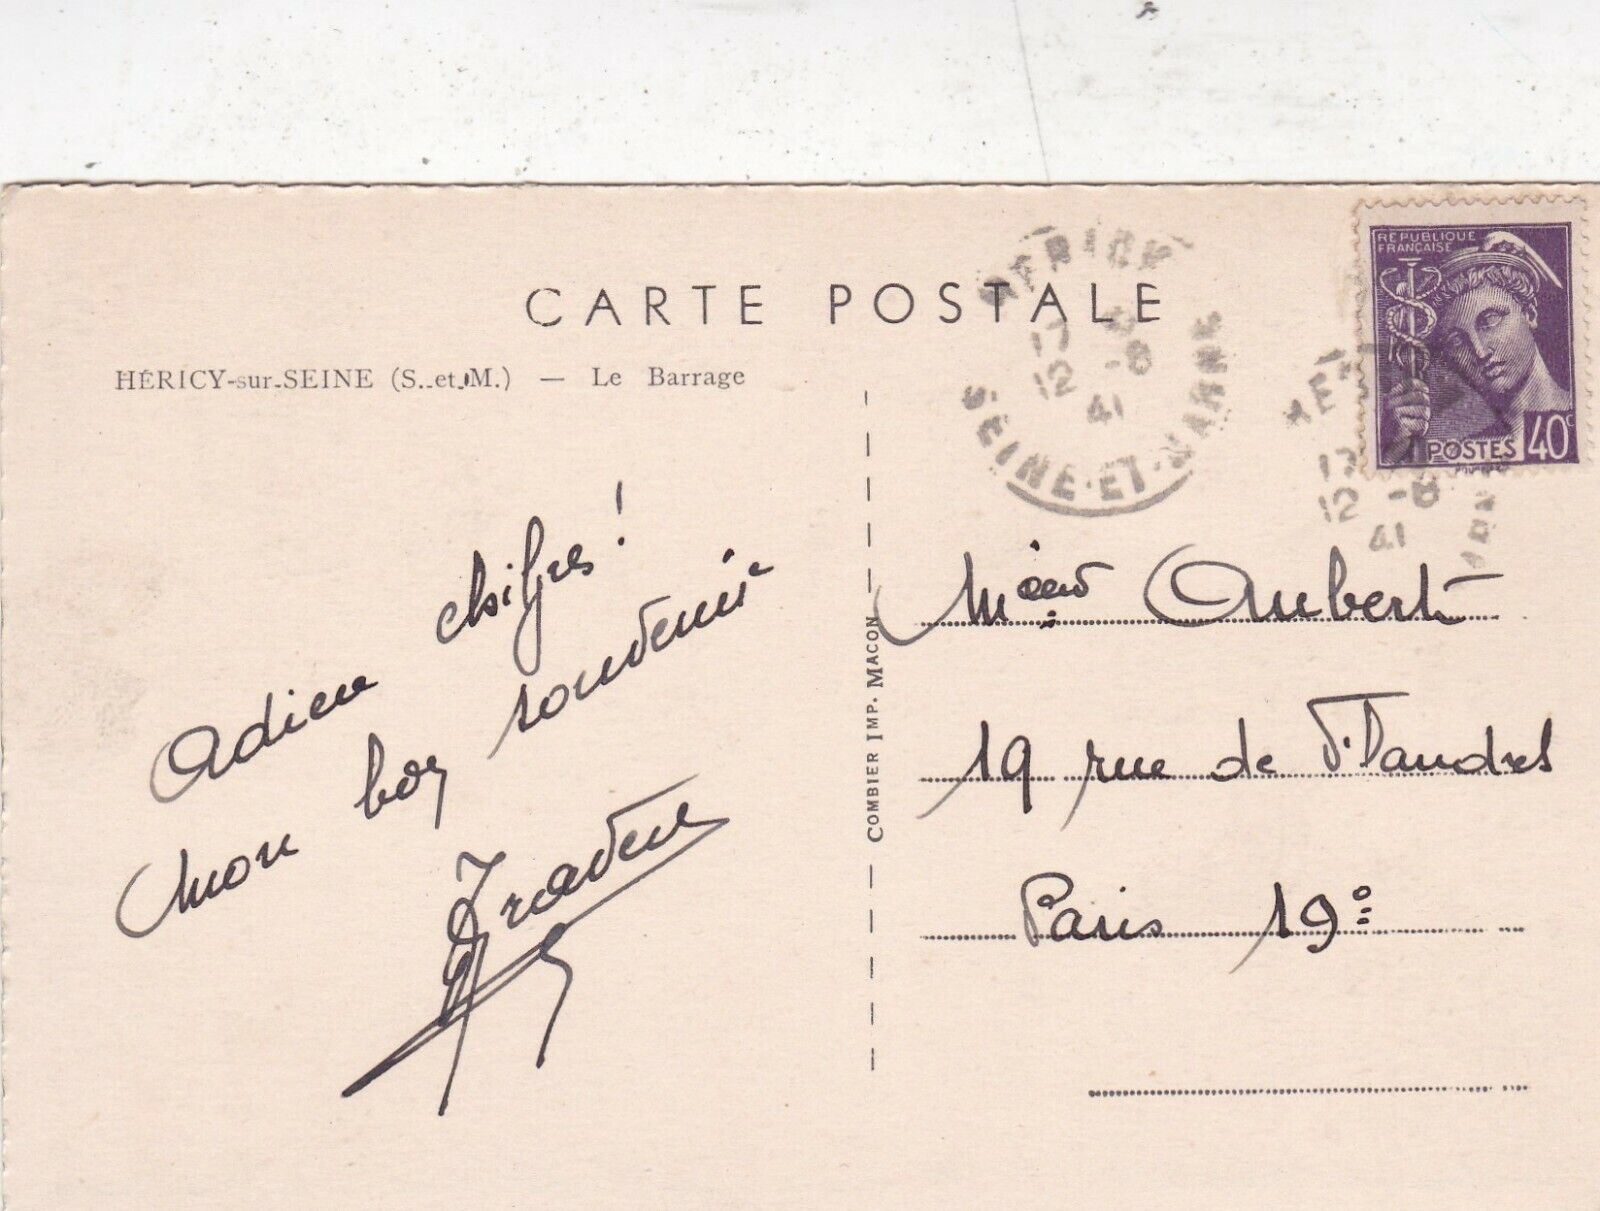 CARTE POSTALE
HÉRICY-sur-SEINE (S.-et-M.) — Le Barrage
RÉPUBLIQUE
FRANÇAISE
POSTES 40c
HÉRICY
17
12 -8
41
SEINE-ET-MARNE
17
12 -8
41
Adieu chiffres!
mon bon souvenir
COMBIER IMP. MACON
Aubert
19 rue de Flandres
Paris 19e